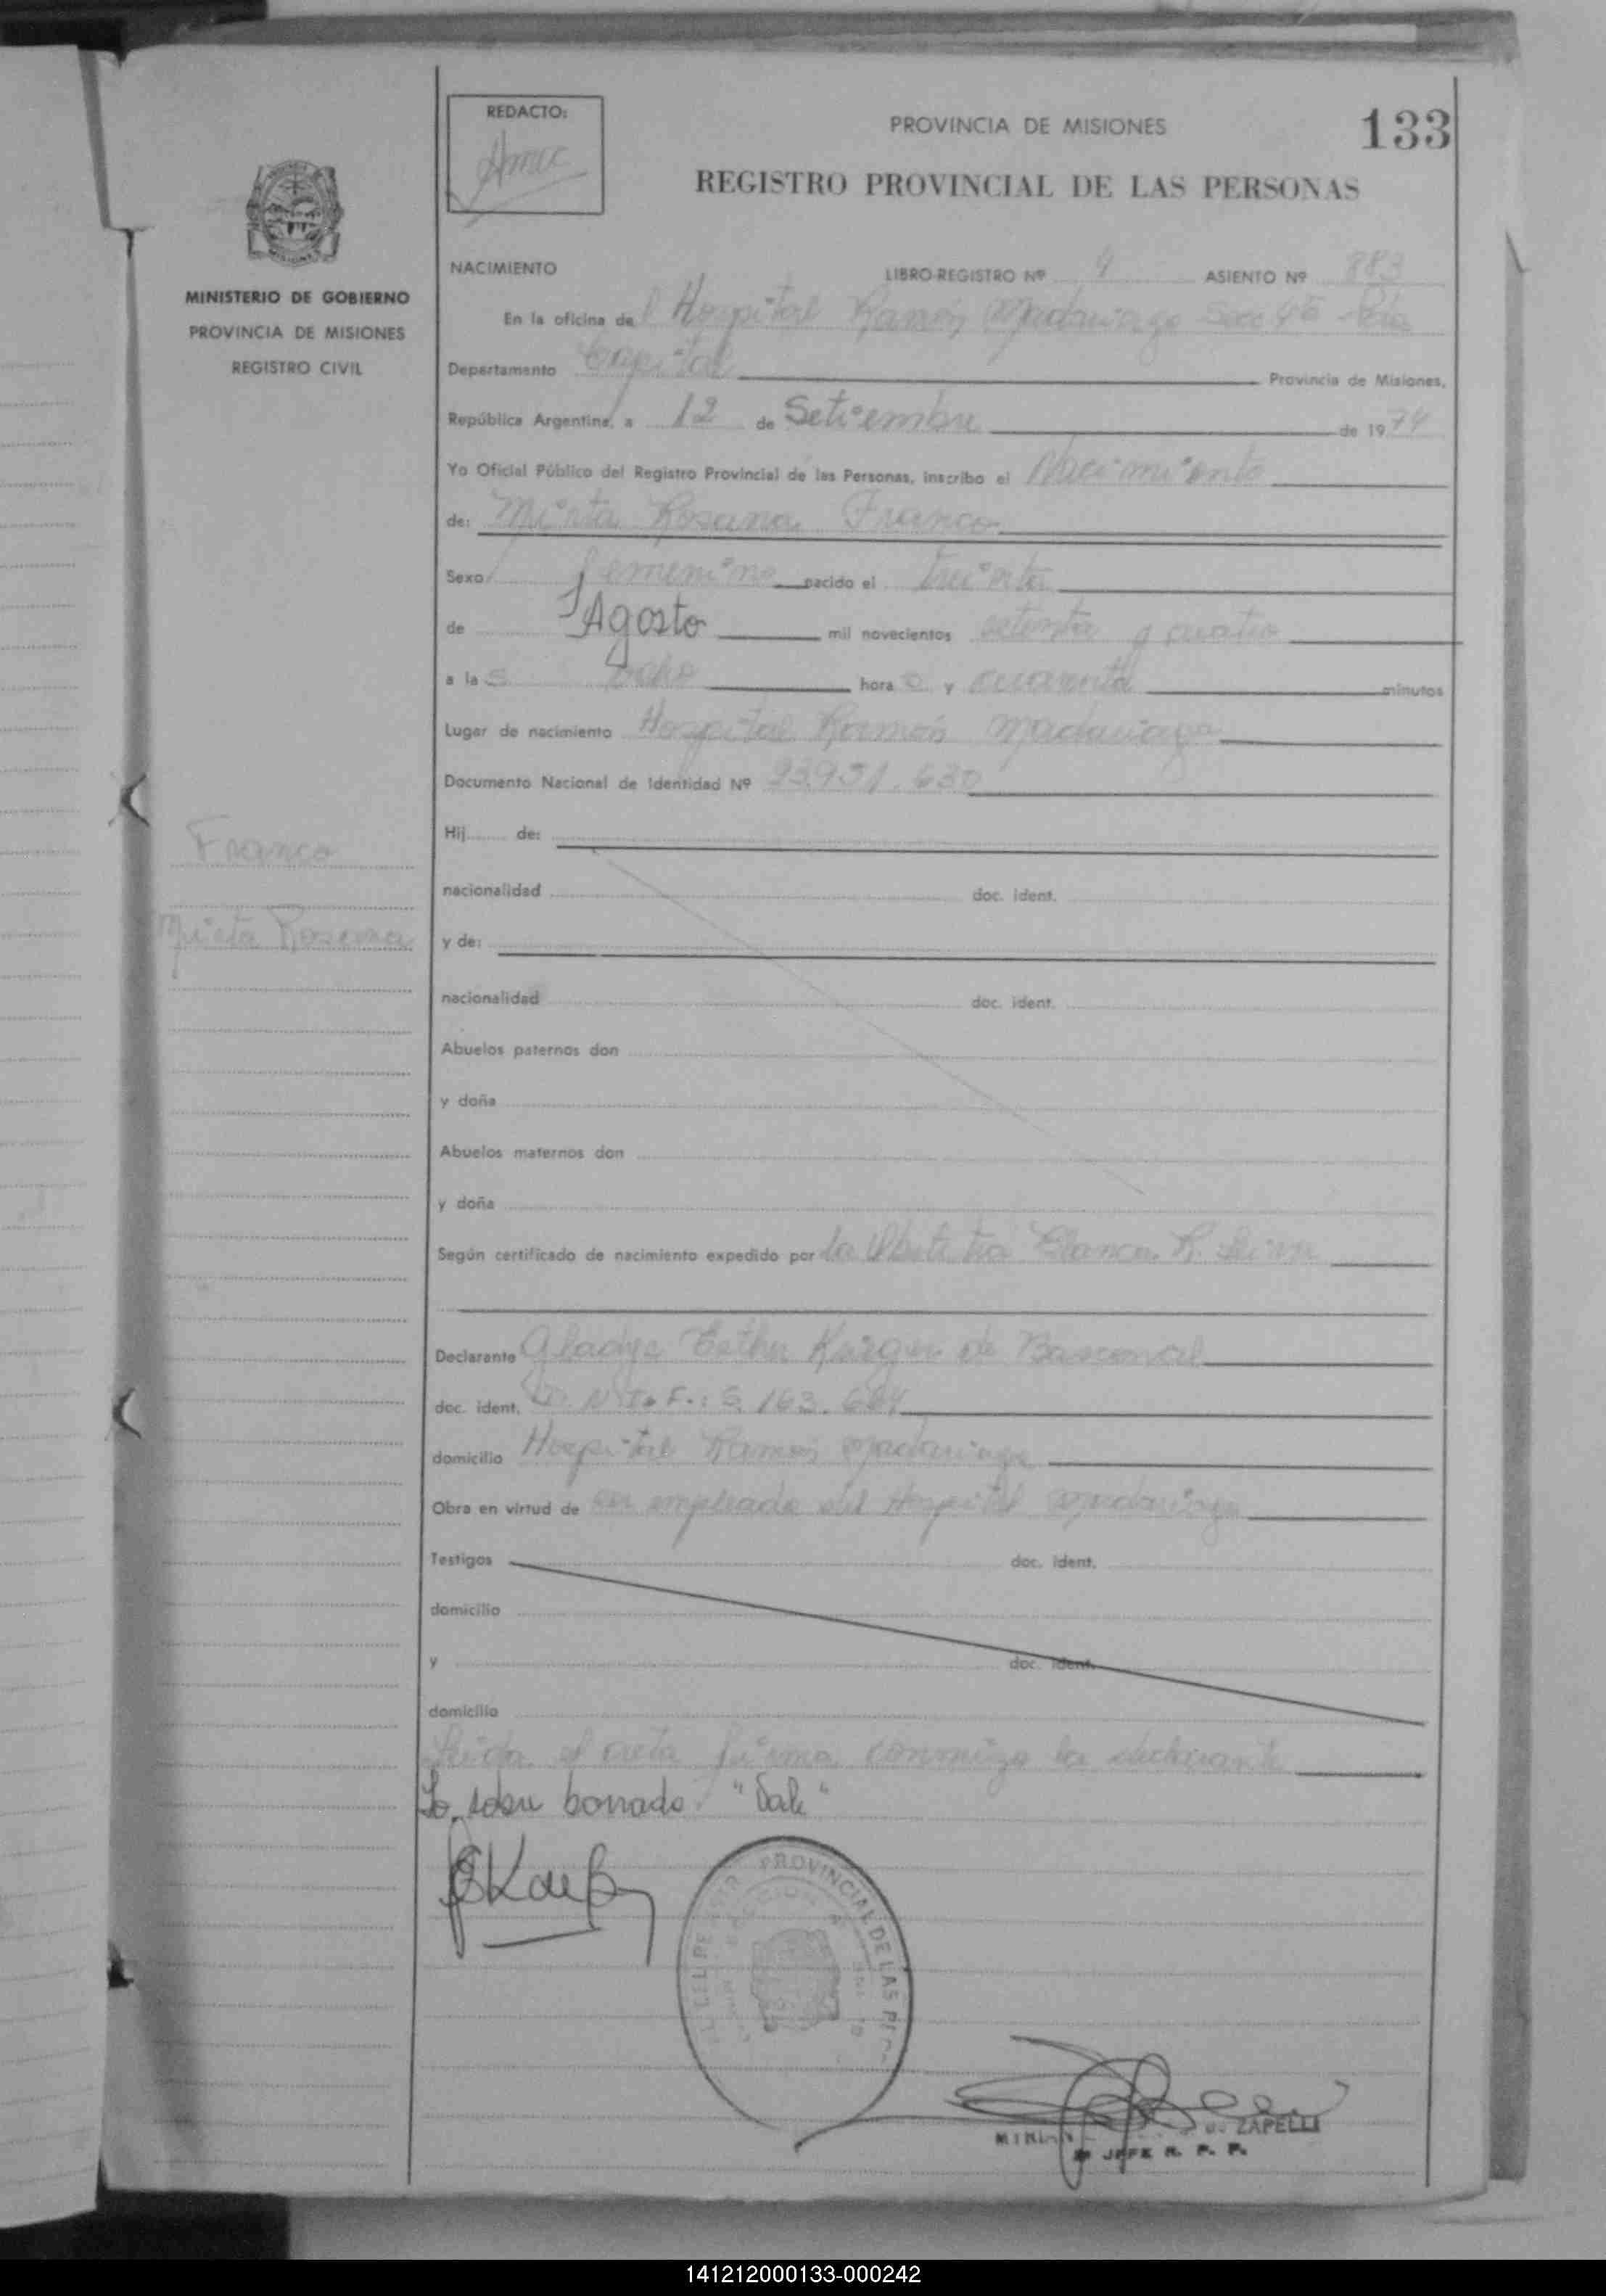 REDACTO:
PROVINCIA DE MISIONES
133
REGISTRO PROVINCIAL DE LAS PERSONAS
MINISTERIO DE GOBIERNO
PROVINCIA DE MISIONES
REGISTRO CIVIL
NACIMIENTO LIBRO-REGISTRO Nº 4 ASIENTO Nº 883
En la oficina del Hospital Ramón Madariaga Secc 4ta
Departamento Capital Provincia de Misiones,
República Argentina, a 12 de Setiembre de 1974
Yo Oficial Público del Registro Provincial de las Personas, inscribo el Nacimiento
de: Mirta Rosana Franco
Sexo femenino nacido el treinta
de Agosto mil novecientos setenta y cuatro
a las ocho hora s y cuarenta minutos
Lugar de nacimiento Hospital Ramón Madariaga
Documento Nacional de Identidad Nº 23.951.630
Franco
Mirta Rosana
Hij de:
nacionalidad doc. ident.
y de:
nacionalidad doc. ident.
Abuelos paternos don
y doña
Abuelos maternos don
y doña
Según certificado de nacimiento expedido por la Obstetra Blanca R.
Declarante Gladys Esther de
doc. ident. 163.664
domicilio Hospital Ramón Madariaga
Obra en virtud de ser empleada del Hospital Madariaga
Testigos doc. ident.
domicilio
y doc. ident.
domicilio
Leida el acta firma conmigo la declarante
Lo sobre borrado "Vale"
PROVINCIAL DE LAS
ZAPELLI
JEFE R. P. P.
141212000133-000242